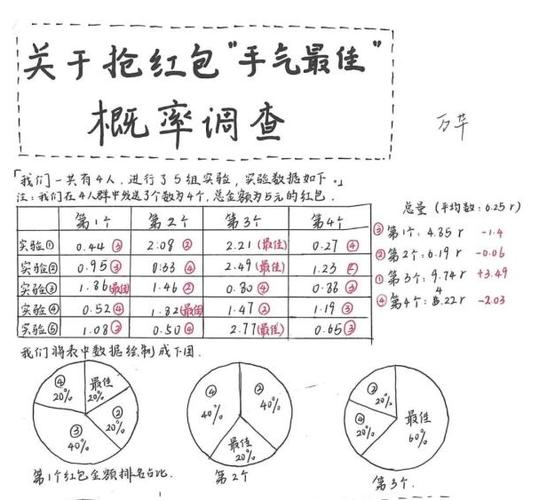 关于抢红包"手气最佳"
概率调查
万华
「我们一共有4人,进行了5组实验,实验数据如下。」
注:我们在4人群中发送了个数为4个,总金额为5元的红包.
第1个 第2个 第3个 第4个
实验① 0.44③ 2.08② 2.21(最佳) 0.27④
实验② 0.95③ 0.33④ 2.49(最佳) 1.23②
实验③ 1.86(最佳) 1.46② 0.80④ 0.88③
实验④ 0.52④ 1.82(最佳) 1.47② 1.19③
实验⑤ 1.08② 0.50④ 2.77(最佳) 0.65③
总量(平均数:6.25r)
③第1个:4.85r -1.4
②第2个:6.19r -0.06
①第3个:9.74r +3.49
④第4个:4.22r -2.03
我们将表中数据绘制成下图.
④ 20% 最佳 20% ② 20% ③ 40%
第1个红包金额排名占比.
④ 40% ② 40% 最佳 20%
第2个
② 20% ④ 20% 最佳 60%
第3个.